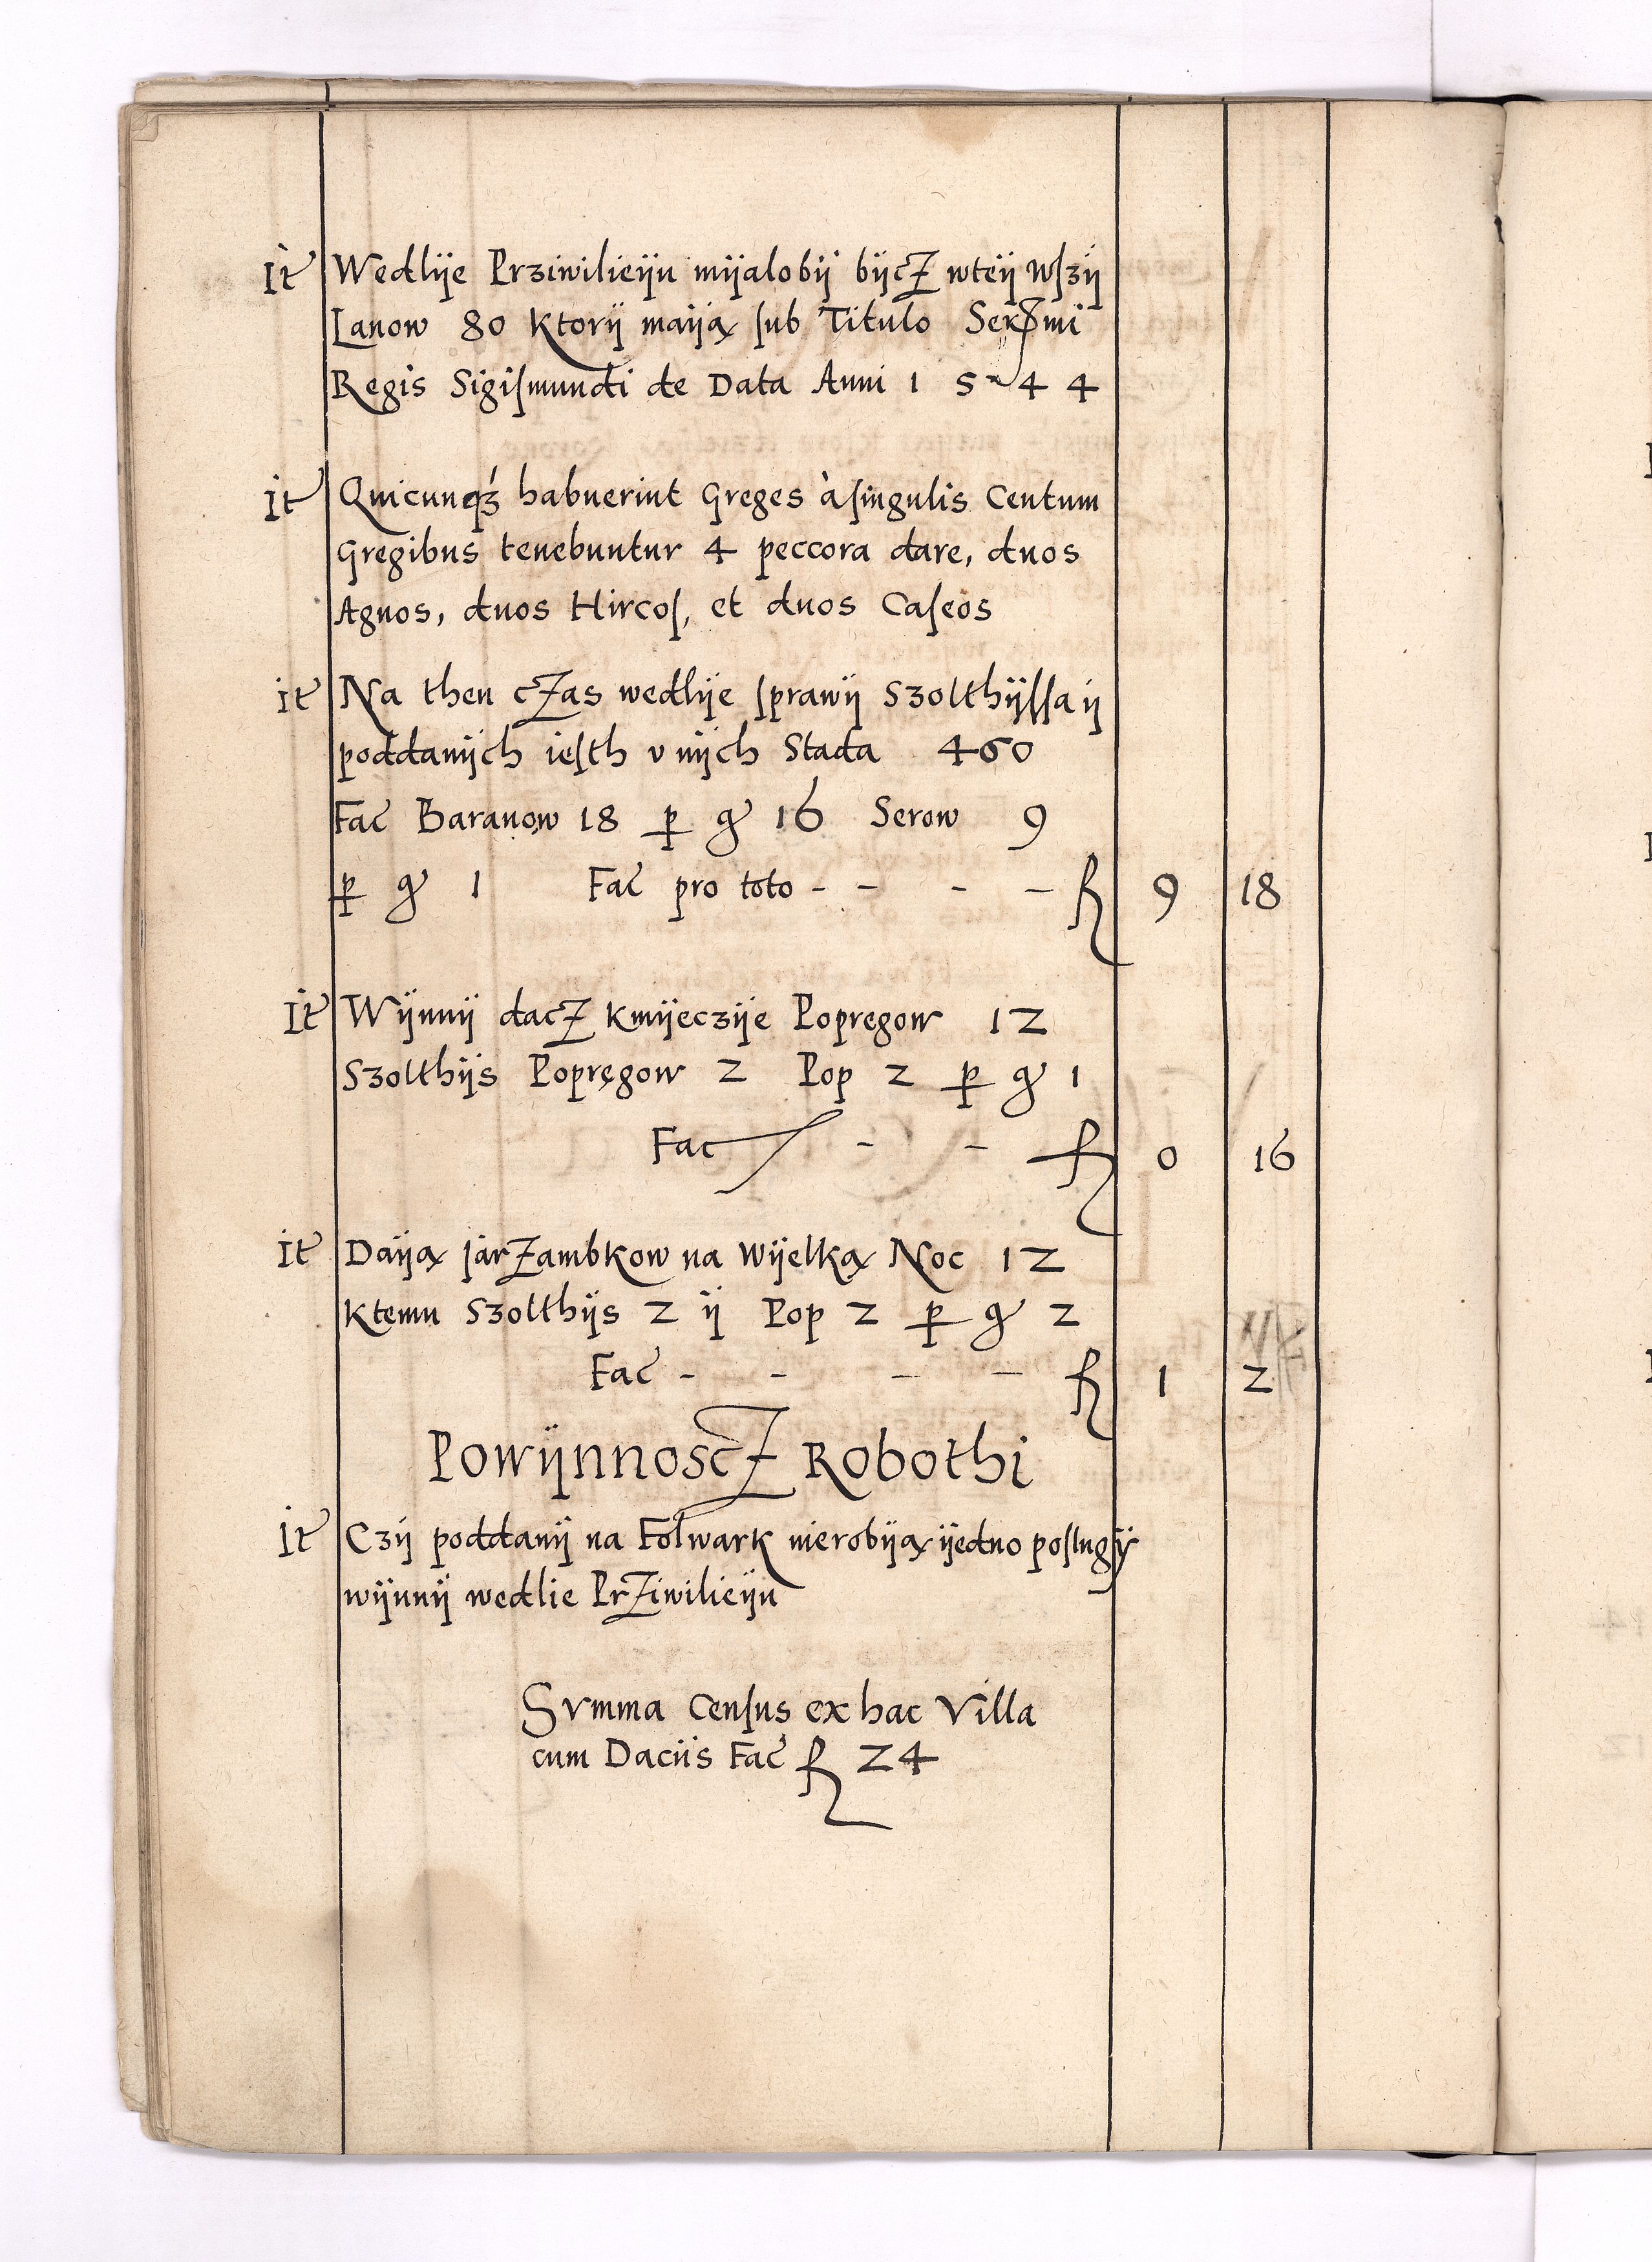 It Wedlÿe Prziwilieÿu mÿalobÿ bÿcZ wteÿ wſzÿ
Lanow 80 Ktorÿ maÿą ſub Titulo
Regis Sigiſmundi de Data Anni 1 5 4 4
It Quicunqꝫ habuerint Greges à ſingulis Centum
Gregibus tenebuntur 4 peccora dare, duos
Agnos, duos Hircoſ, et duos Caſeos
it Na then cZas wedlÿe ſprawÿ Szolthÿſſa ÿ
poddanÿch ieſth v nÿch Stada 460
Fac Baranow 18 ꝑ gr 16 Serow 9
ꝑ gr 1 Fac pro toto - - - - fl 9 18
It Wÿnnÿ dacZ Kmÿeczÿe Popręgow 12
Szolthÿs Popręgow 2 Pop 2 ꝑ gr 1
Fac - - fl 0 16
it Daÿą jarZambkow na Wÿelką Noc 12
Ktemu Szolthÿs 2 ÿ Pop 2 ꝑ gr 2
Fac - - - - fl 1 2
PowÿnnoscZ Robothi
it Czÿ poddanÿ na Folwark nierobÿą ÿedno poslugÿ
wÿnnÿ wedlie PrZiwilieÿu
Svmma Cenſus ex hac Villa
cum Daciis Fac fl 24